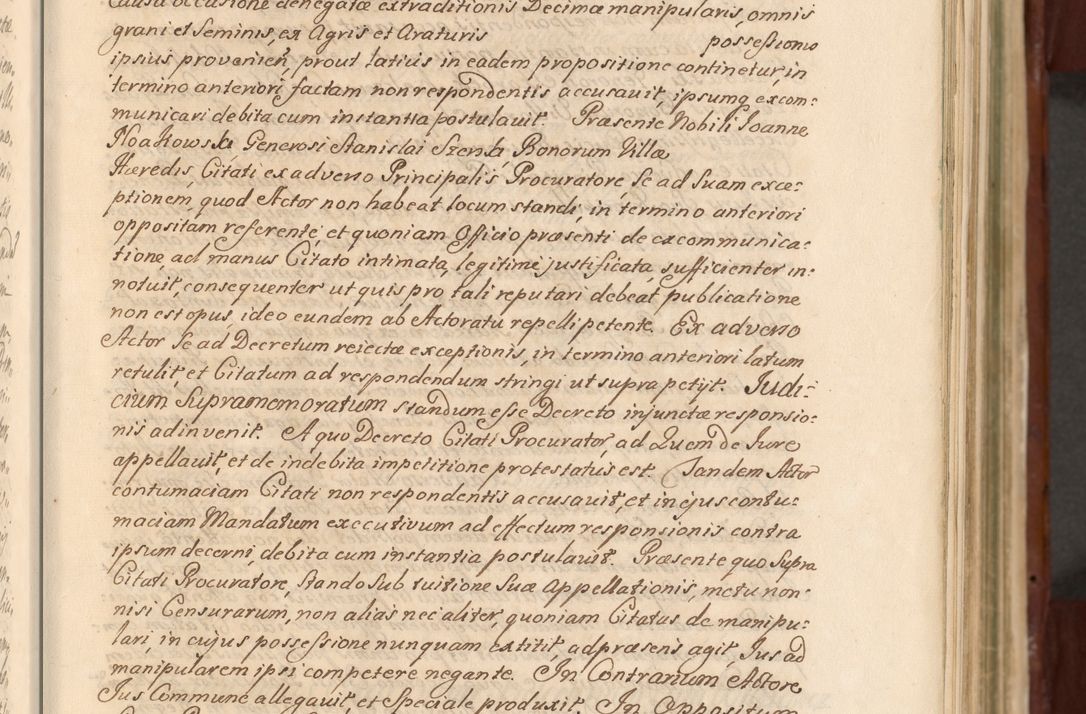 Causa occasione denegatæ extraditionis Decimæ manipularis, omnis
grani et Seminis, ex Agris et Araturis possessionis
ipsius provenien, prout latius in eadem propositione continetur, in
termino anteriori factam non respondentis accusavit, ipsumq excom:
municari debita cum instantia postulavit. Præsente Nobili Joanne
Noakowski Generosi Stanislai Bonorum Villæ
Hæredis, Citati ex adverso Principalis Procuratore Se ad Suam exce:
ptionem, quod Actor non habeat locum standi, in termino anteriori
oppositam referente, et quoniam Officio præsenti de excommunica:
tione, ad manus Citato intimata, legitime justificata, sufficienter in:
notuit, consequenter ut quis pro tali reputari debeat, publicatione
non est opus, ideo eundem ab Actoratu repelli petente. Ex adverso
Actor Se ad Decretum reiectæ exceptionis, in termino anteriori latum
retulit, et Citatum ad respondendum stringi ut supra petijt. Judi:
cium Supramemoratum standum esse Decreto injunctæ responsio:
nis adinvenit. A quo Decreto Citati Procurator, ad Quem de Jure
appellavit, et de indebita impetitione protestatus est. Tandem Actor
contumaciam Citati non respondentis accusavit, et in ejus contu:
maciam Mandatum executivum ad effectum responsionis contra
ipsum decerni, debita cum instantia postulavit. Præsente quo Supra
Citati Procuratore, Stando Sub tuitione Suæ Appellationis, metu non:
nisi Censurarum, non alias nec aliter, quoniam Citatus de manipu:
lari, in cujus possessione nunquam extitit, ad præsens agit, Jus ad
manipularem ipsi competere negante. In Contrarium Actore
Jus Commune allegavit, et Speciale produxit. In Oppositum